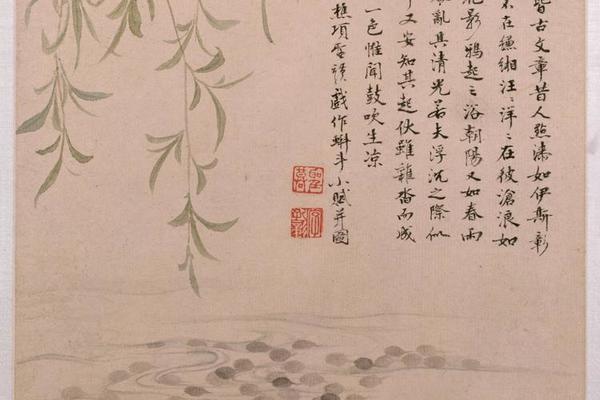 皆古文章昔人點漆如伊斯彰
不在縑緗汪〻洋〻在彼滄浪如
影鴉起〻浴朝陽又如春雨
亂其清光若夫浮沉之際似
又安知其起伏雖雜沓而成
一色惟聞鼓吹生涼
樵項聖謨戲作蝌斗小賦并圖